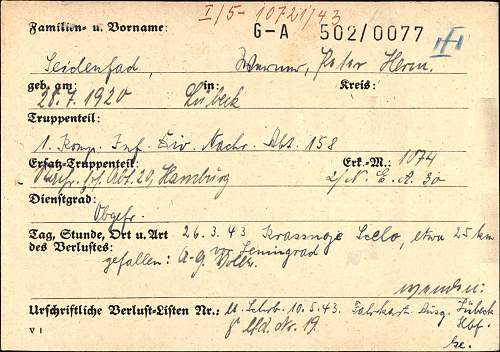 I/5-10721/43
Familien- u. Vorname: G-A 502/0077
Seidenfad, Werner, Peter Herm.
geb. am: in: Kreis:
28.7.1920 Lübeck
Truppenteil:
1. Komp. Inf. Div. Nachr. Abt. 158
Ersatz-Truppenteil: Erk.-M.: 1074
Abt. 20, Hamburg 2/N. E. A. 30
Dienstgrad:
Obgefr.
Tag, Stunde, Ort u. Art 26.3.43 Krassnoje Sselo, etwa 25 km
des Verlustes: vor Leningrad
gefallen: A.-G.
Urschriftliche Verlust-Listen Nr.: 10.5.43. Lübeck
lfd. Nr. 19 Hbf.
V I